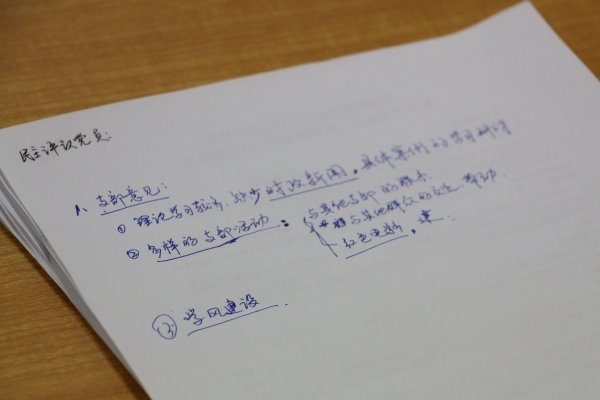 民主评议党员:
1、支部意见:
① 理论学习较多,缺少时政新闻,具体案例的学习研讨
② 多样的支部活动:
与其他支部的联系
与其他群众的交流、带动
红色电影,
③ 学风建设.